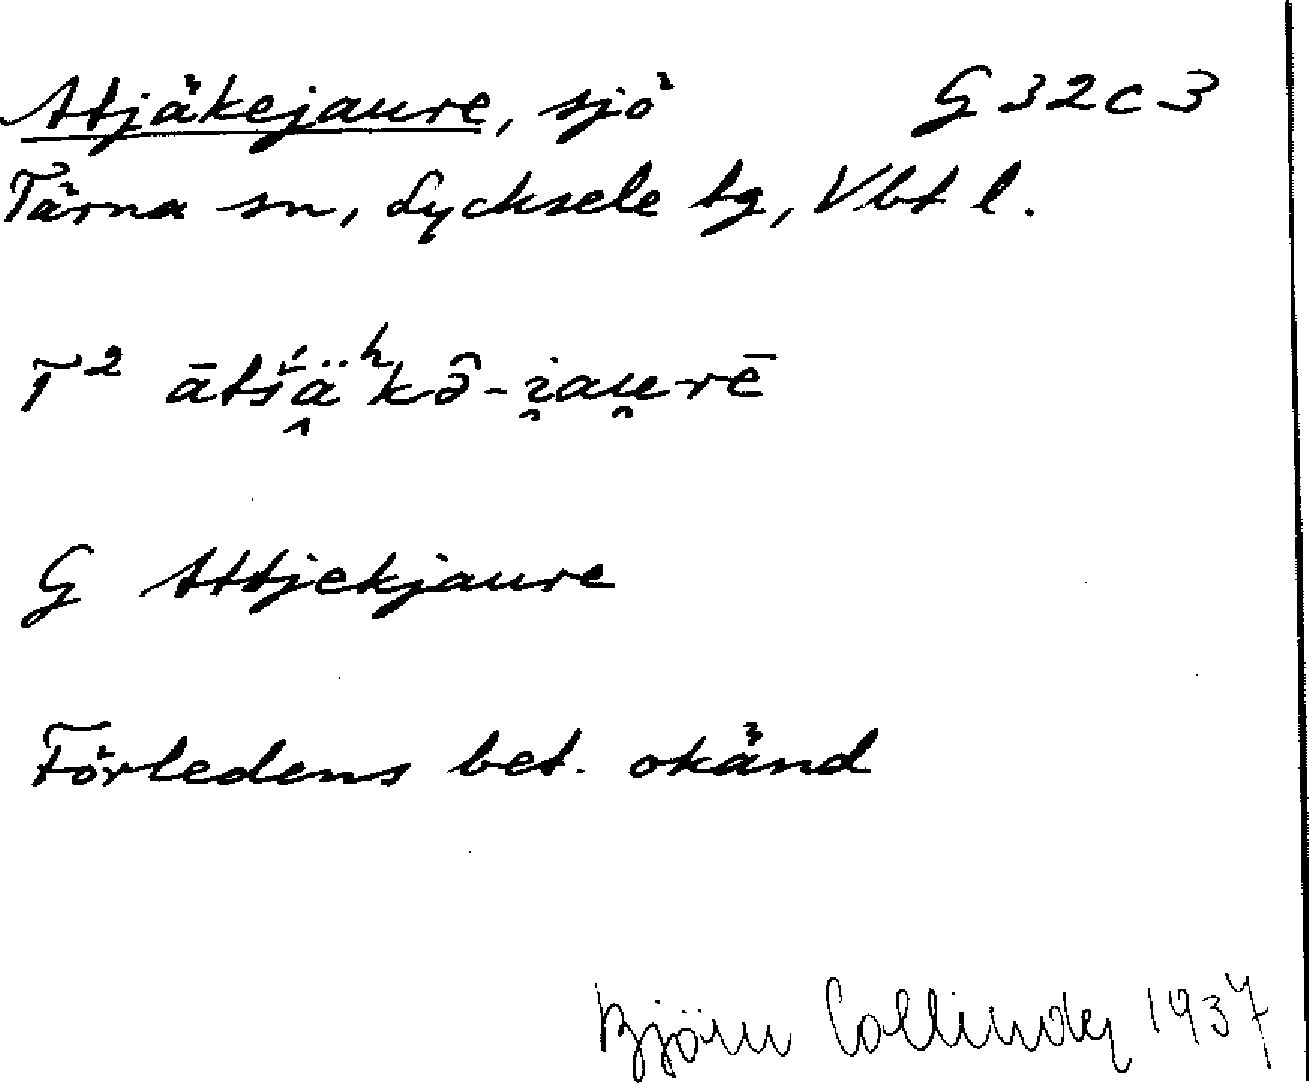 Atjäkejaure, sjö G 32 c 3
Tärna sn, Lycksele tg, Vbt l.
T² ātśä̭ʰkə̑-i̯au̯rē
G Attjekjaure
Förledens bet. okänd
Björn Collinder 1937